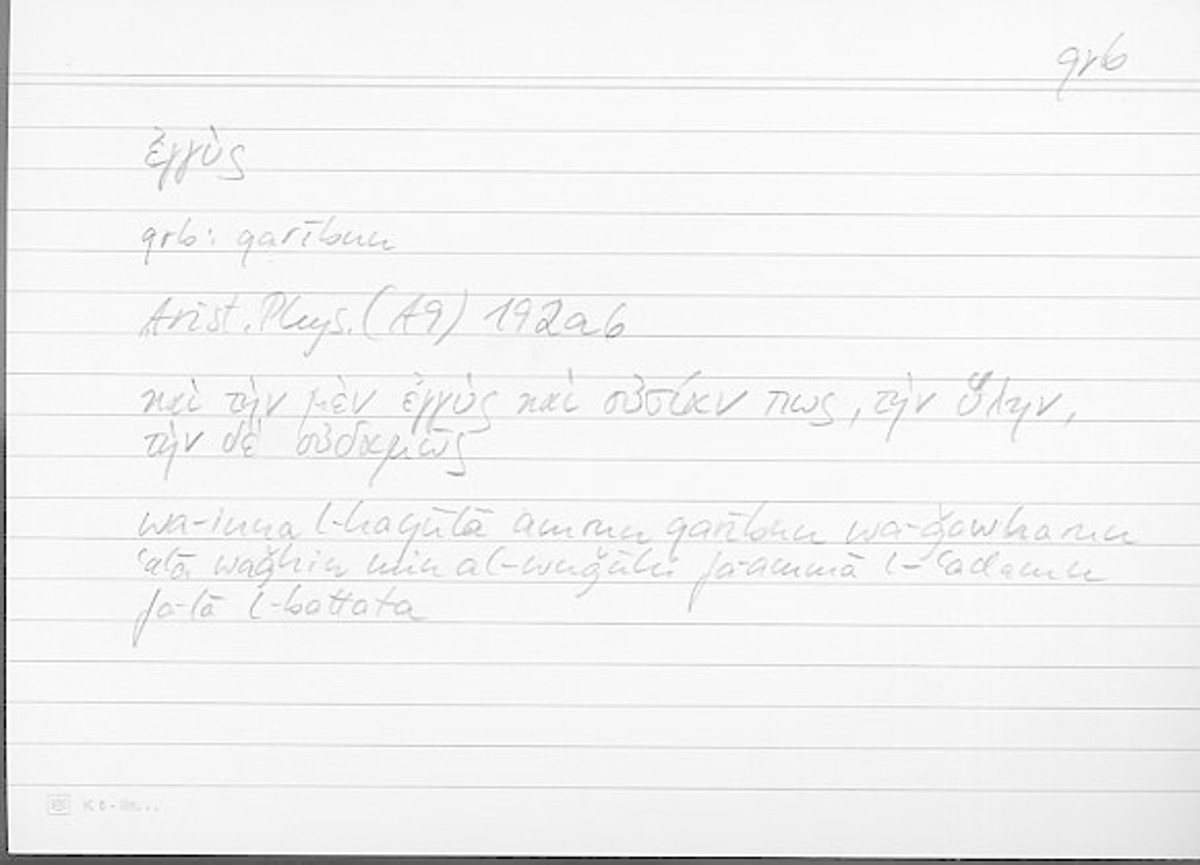 qrb
ἐγγὺς
qrb: qarībun
Arist. Phys. (A9) 192a6
καὶ τὴν μὲν ἐγγὺς καὶ οὐσίαν πως, τὴν ὕλην,
τὴν δὲ οὐδαμῶς
wa-inna l-hayūlā amrun qarībun wa-ǧawharun
ʿalā waǧhin min al-wuǧūhi fa-ammā l-ʿadamu
fa-lā l-battata